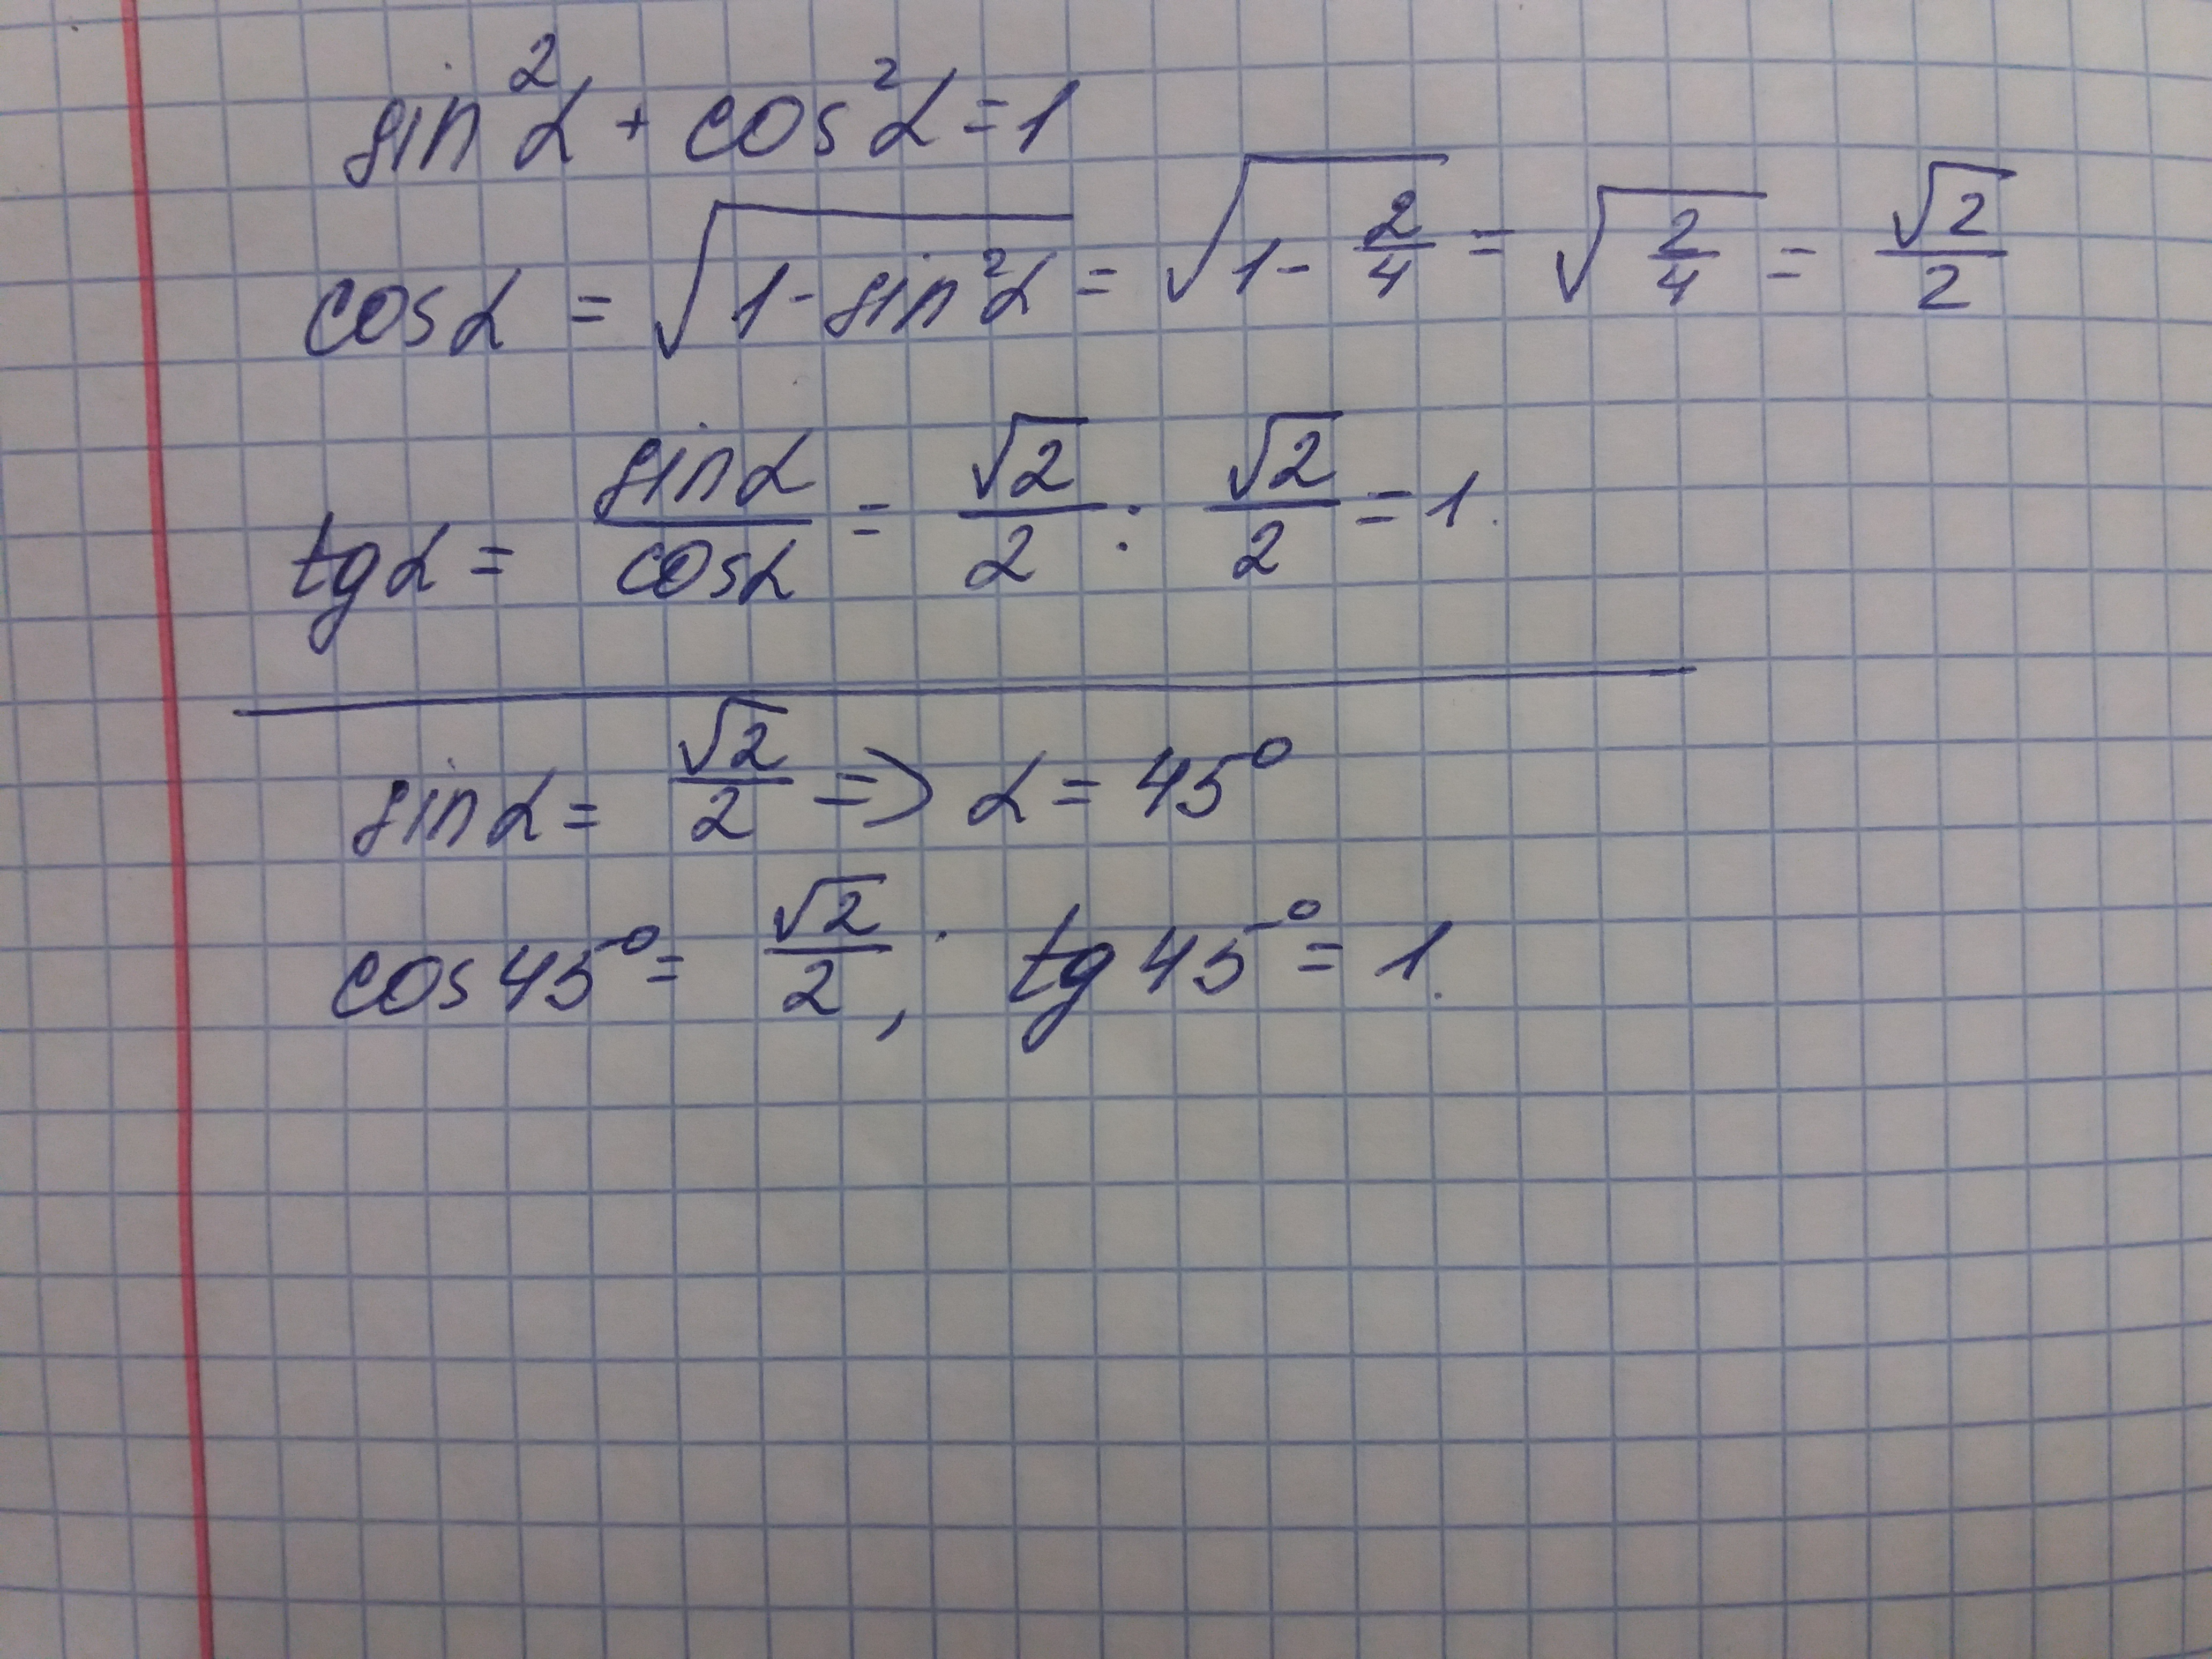 sin²α + cos²α = 1
cosα = √(1 - sin²α) = √(1 - 2/4) = √(2/4) = √2/2
tgα = sinα/cosα = √2/2 : √2/2 = 1.
sinα = √2/2 => α = 45°
cos45° = √2/2, tg45° = 1.